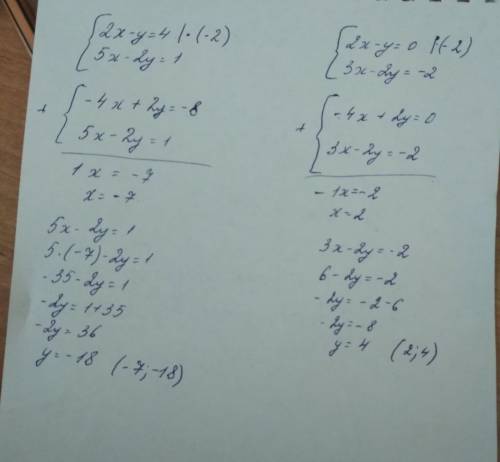 2x-y=4 | · (-2)
5x-2y=1
+
-4x+2y=-8
5x-2y=1
1x = -7
x = -7
5x-2y=1
5·(-7)-2y=1
-35-2y=1
-2y=1+35
-2y=36
y=-18 (-7;-18)
2x-y=0 |·(-2)
3x-2y=-2
+
-4x+2y=0
3x-2y=-2
-1x=-2
x=2
3x-2y=-2
6-2y=-2
-2y=-2-6
-2y=-8
y=4 (2;4)